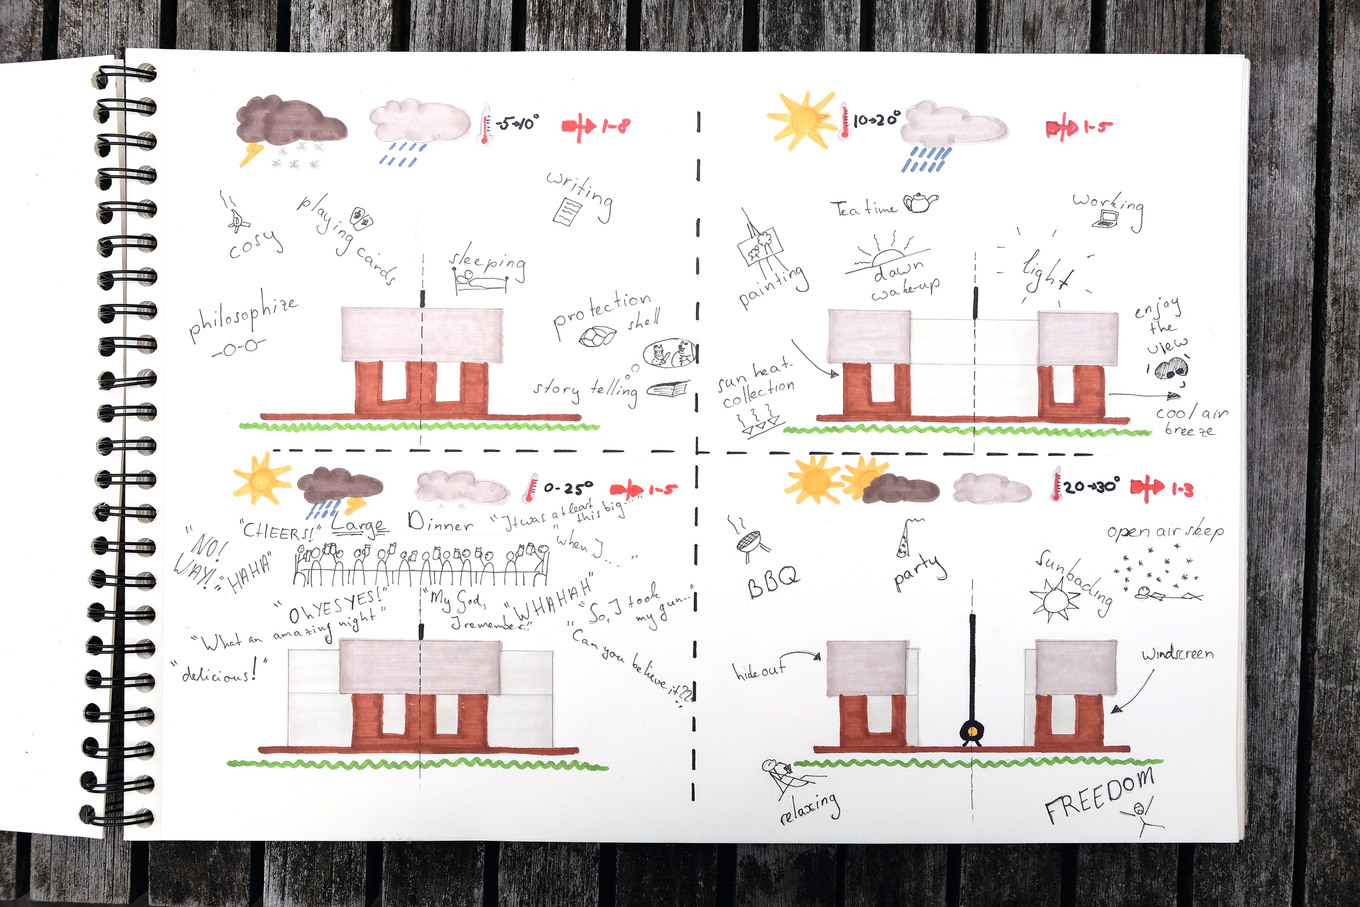 -5→10°
1-8
writing
playing cards
cosy
sleeping
philosophize
protection
shell
story telling
10→20°
1-5
Tea time
working
painting
dawn
wake-up
light
enjoy
the
view
sun heat-
collection
cool air
breeze
0-25°
1-5
"NO!
WAY!"
"CHEERS!"
Large Dinner
"It was at least
this big..."
"when I
..."
"HAHA"
"OH, YES YES!"
"My God,
I remember."
"WHAHAH"
"So, I took
my gun..."
"What an amazing night"
"Can you believe it??
"delicious!"
20→30°
1-3
BBQ
party
open air sleep
Sunbading
hideout
windscreen
relaxing
FREEDOM